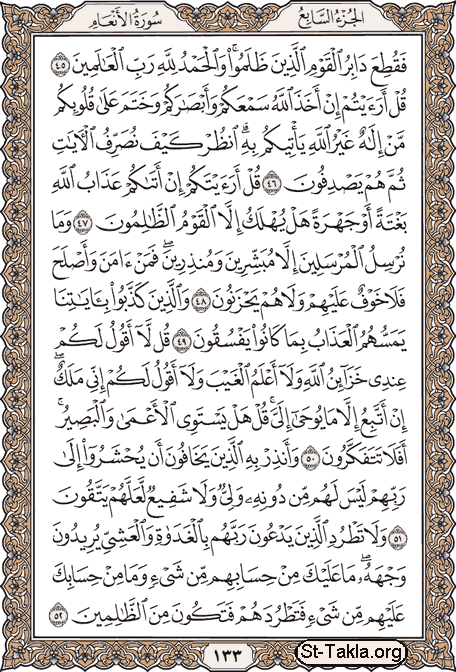 الجزء السابع
سورة الأنعام
فَقُطِعَ دَابِرُ ٱلْقَوْمِ ٱلَّذِينَ ظَلَمُوا۟ۚ وَٱلْحَمْدُ لِلَّهِ رَبِّ ٱلْعَـٰلَمِينَ ٤٥
قُلْ أَرَءَيْتُمْ إِنْ أَخَذَ ٱللَّهُ سَمْعَكُمْ وَأَبْصَـٰرَكُمْ وَخَتَمَ عَلَىٰ قُلُوبِكُم
مَّنْ إِلَـٰهٌ غَيْرُ ٱللَّهِ يَأْتِيكُم بِهِۗ ٱنظُرْ كَيْفَ نُصَرِّفُ ٱلْـَٔايَـٰتِ
ثُمَّ هُمْ يَصْدِفُونَ ٤٦ قُلْ أَرَءَيْتَكُمْ إِنْ أَتَىٰكُمْ عَذَابُ ٱللَّهِ
بَغْتَةً أَوْ جَهْرَةً هَلْ يُهْلَكُ إِلَّا ٱلْقَوْمُ ٱلظَّـٰلِمُونَ ٤٧ وَمَا
نُرْسِلُ ٱلْمُرْسَلِينَ إِلَّا مُبَشِّرِينَ وَمُنذِرِينَۖ فَمَنْ ءَامَنَ وَأَصْلَحَ
فَلَا خَوْفٌ عَلَيْهِمْ وَلَا هُمْ يَحْزَنُونَ ٤٨ وَٱلَّذِينَ كَذَّبُوا۟ بِـَٔايَـٰتِنَا
يَمَسُّهُمُ ٱلْعَذَابُ بِمَا كَانُوا۟ يَفْسُقُونَ ٤٩ قُل لَّآ أَقُولُ لَكُمْ
عِندِى خَزَآئِنُ ٱللَّهِ وَلَآ أَعْلَمُ ٱلْغَيْبَ وَلَآ أَقُولُ لَكُمْ إِنِّى مَلَكٌۖ
إِنْ أَتَّبِعُ إِلَّا مَا يُوحَىٰٓ إِلَىَّۚ قُلْ هَلْ يَسْتَوِى ٱلْأَعْمَىٰ وَٱلْبَصِيرُۚ
أَفَلَا تَتَفَكَّرُونَ ٥٠ وَأَنذِرْ بِهِ ٱلَّذِينَ يَخَافُونَ أَن يُحْشَرُوٓا۟ إِلَىٰ
رَبِّهِمْ لَيْسَ لَهُم مِّن دُونِهِۦ وَلِىٌّ وَلَا شَفِيعٌ لَّعَلَّهُمْ يَتَّقُونَ
٥١ وَلَا تَطْرُدِ ٱلَّذِينَ يَدْعُونَ رَبَّهُم بِٱلْغَدَوٰةِ وَٱلْعَشِىِّ يُرِيدُونَ
وَجْهَهُۥۖ مَا عَلَيْكَ مِنْ حِسَابِهِم مِّن شَىْءٍ وَمَا مِنْ حِسَابِكَ
عَلَيْهِم مِّن شَىْءٍ فَتَطْرُدَهُمْ فَتَكُونَ مِنَ ٱلظَّـٰلِمِينَ ٥٢
١٣٣
St-Takla.org